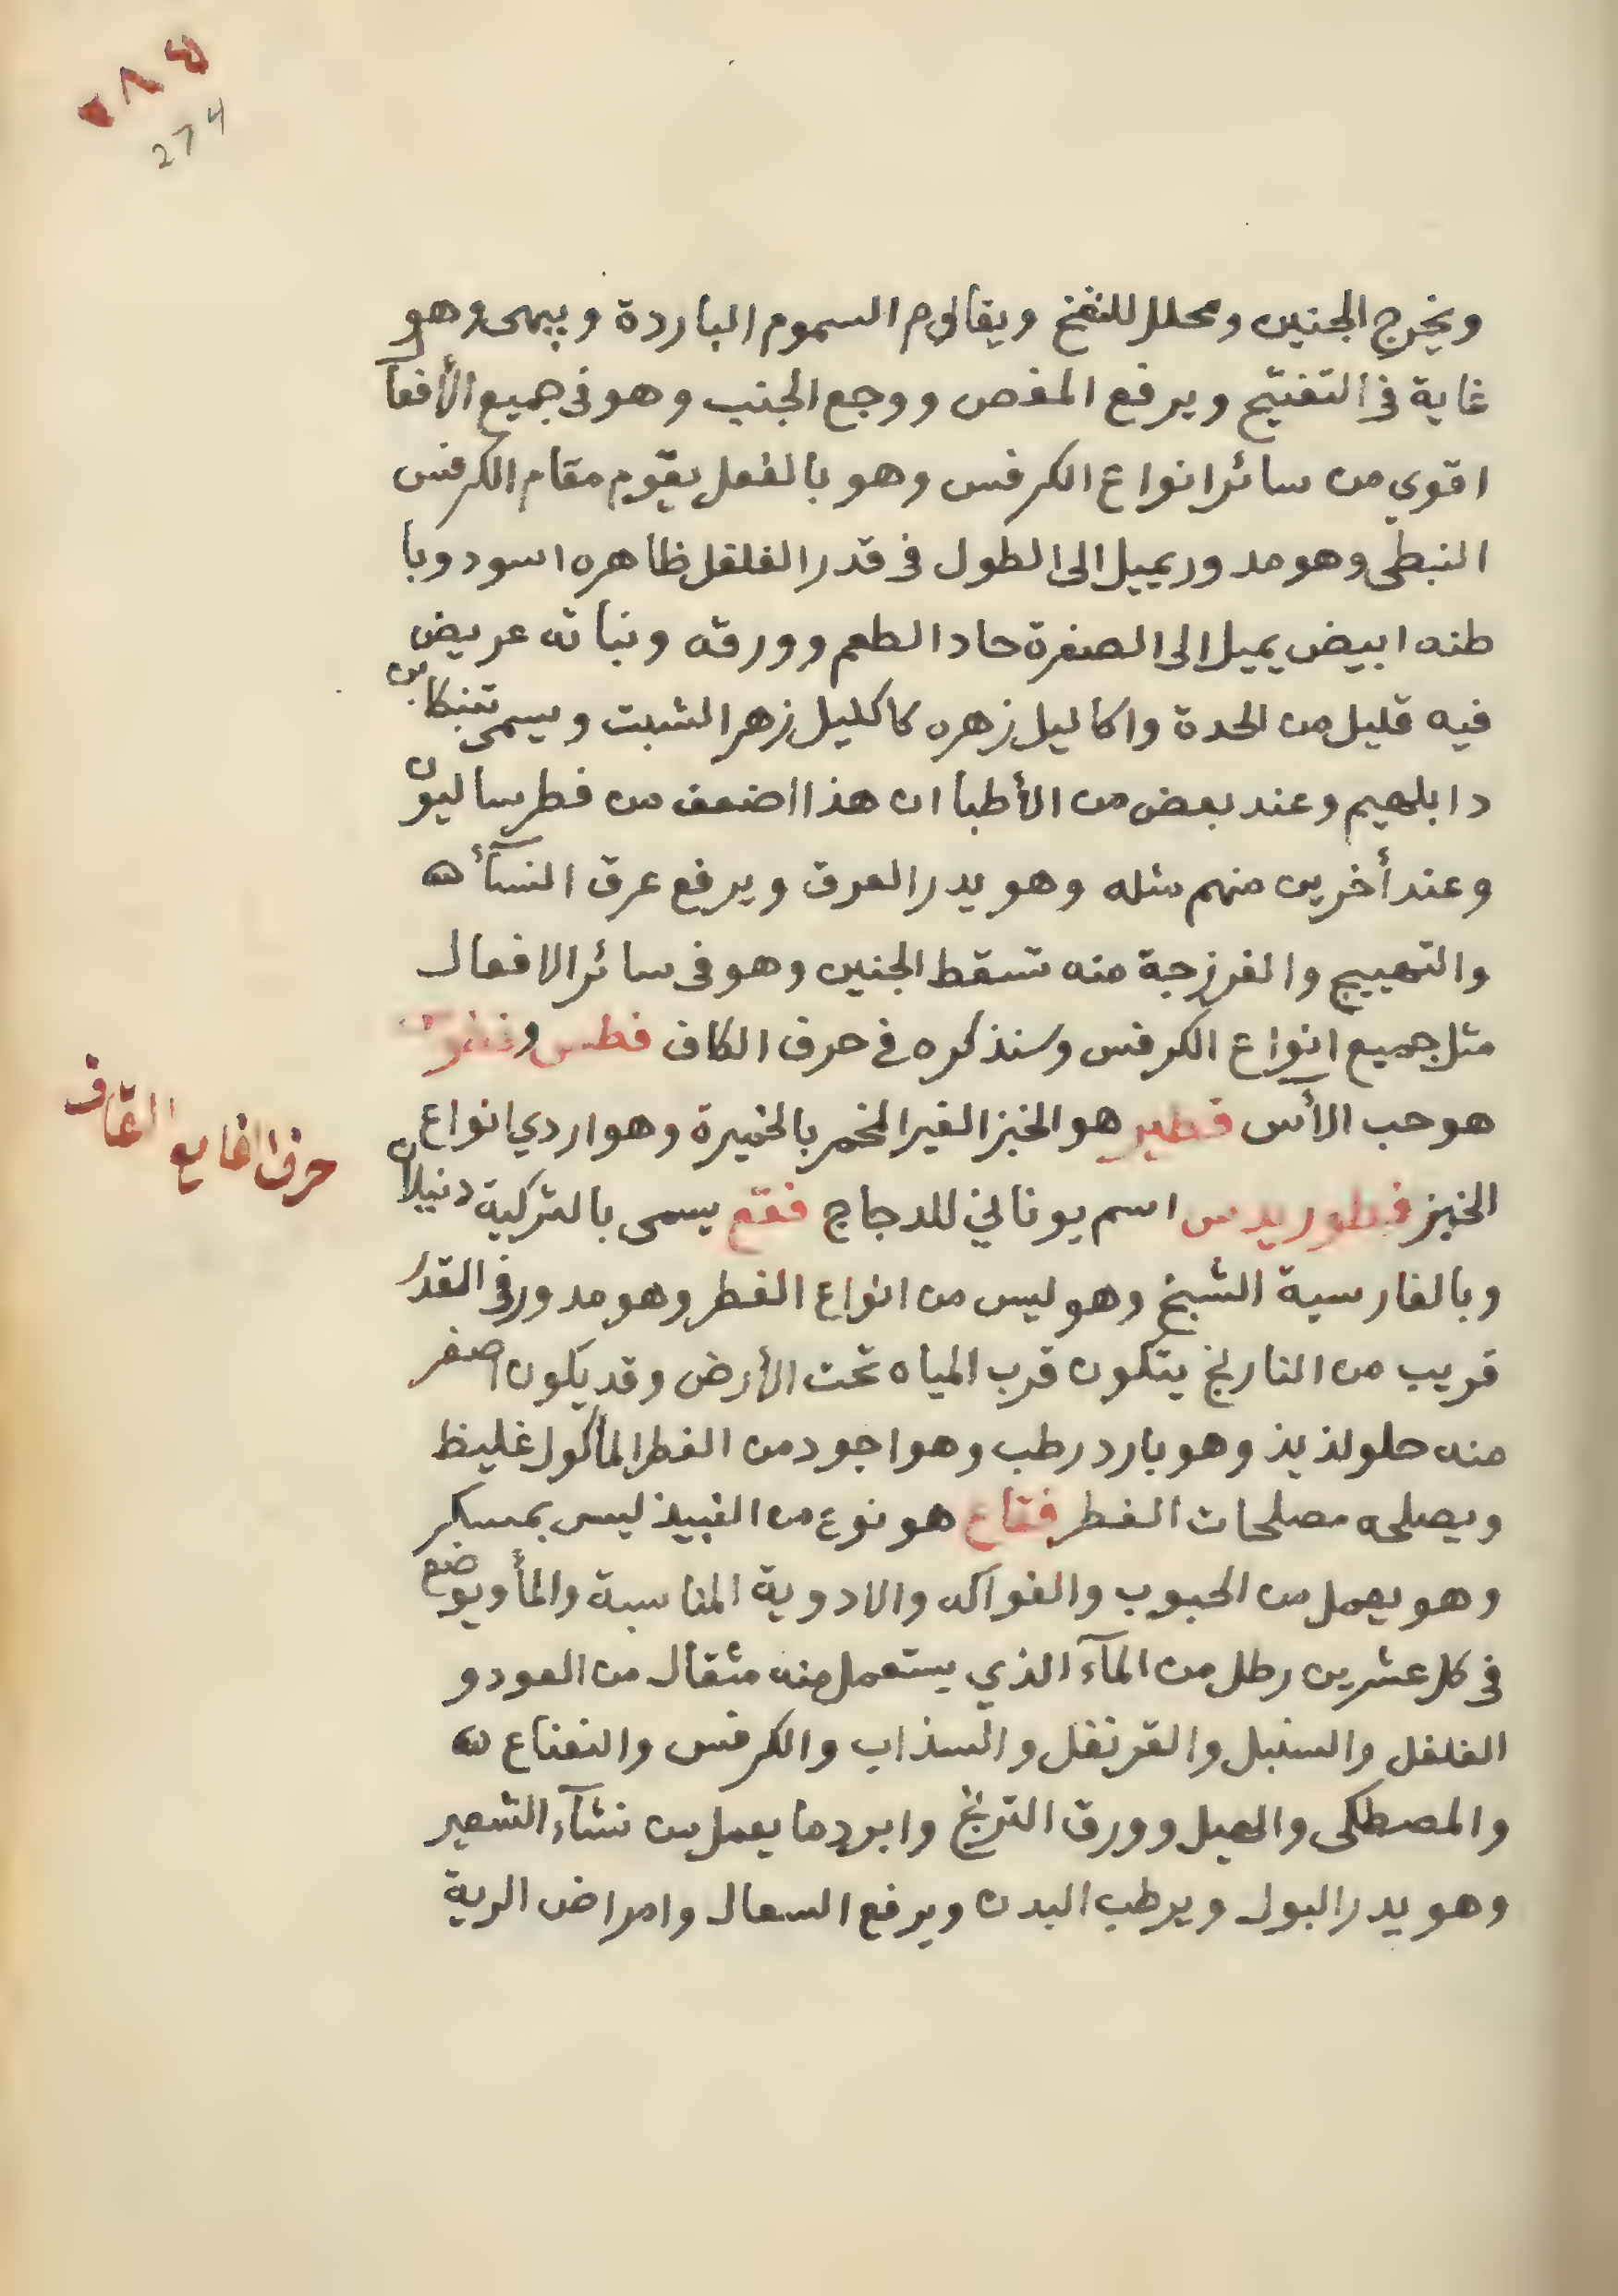 274
ويخرج الجنين ومحلل للنفخ ويقاوم السموم الباردة ويبهى وهو
غاية فى التفتيح ويرفع المغص ووجع الجنب وهو فى جميع الأفعآ
اقوي من سائر انواع الكرفس وهو بالفعل يقوم مقام الكرفس
النبطى وهو مدور يميل الى الطول فى قدر الفلفل ظاهره اسود وبا
طنه ابيض يميل الى الصفرة حاد الطعم وورقه ونباته عريض
فيه قليل من الحدة واكاليل زهره كاكليل زهر الشبت ويسمى
وعند بعض من الأطبا ان هذا اضعف من فطرساليون
وعند أخرين منهم مثله وهو يدر العرق ويرفع عرق النسآ
والتهييج والفرزجة منه تسقط الجنين وهو فى سائر الافعال
مثل جميع انواع الكرفس وسنذكره فى حرف الكاف فطس
هو حب الآس فطير هو الخبز الغير المخمر بالخميرة وهو اردي انواع
الخبز فطوريدس اسم يوناني للدجاج فقع يسمى بالتركية دنبلان
وبالفارسية الشبخ وهو ليس من انواع الفطر وهو مدور فى القدر
قريب من النارنج يتكون قرب المياه تحت الأرض وقد يكون اصفر
منه حلو لذيذ وهو بارد رطب وهو اجود من الفطر المأكول غليظ
ويصلحه مصلحات الفطر فقاع هو نوع من النبيذ ليس بمسكر
وهو يعمل من الحبوب والفواكه والادوية المناسبة والمأ ويوضع
فى كل عشرين رطل من المآء الذي يستعمل منه مثقال من العود و
الفلفل والسنبل والقرنفل والسذاب والكرفس والنعناع
والمصطكى والهيل وورق الترنج وابرد ما يعمل من نشآء الشعير
وهو يدر البول ويرطب البدن ويرفع السعال وامراض الرية
حرف الفا مع القاف